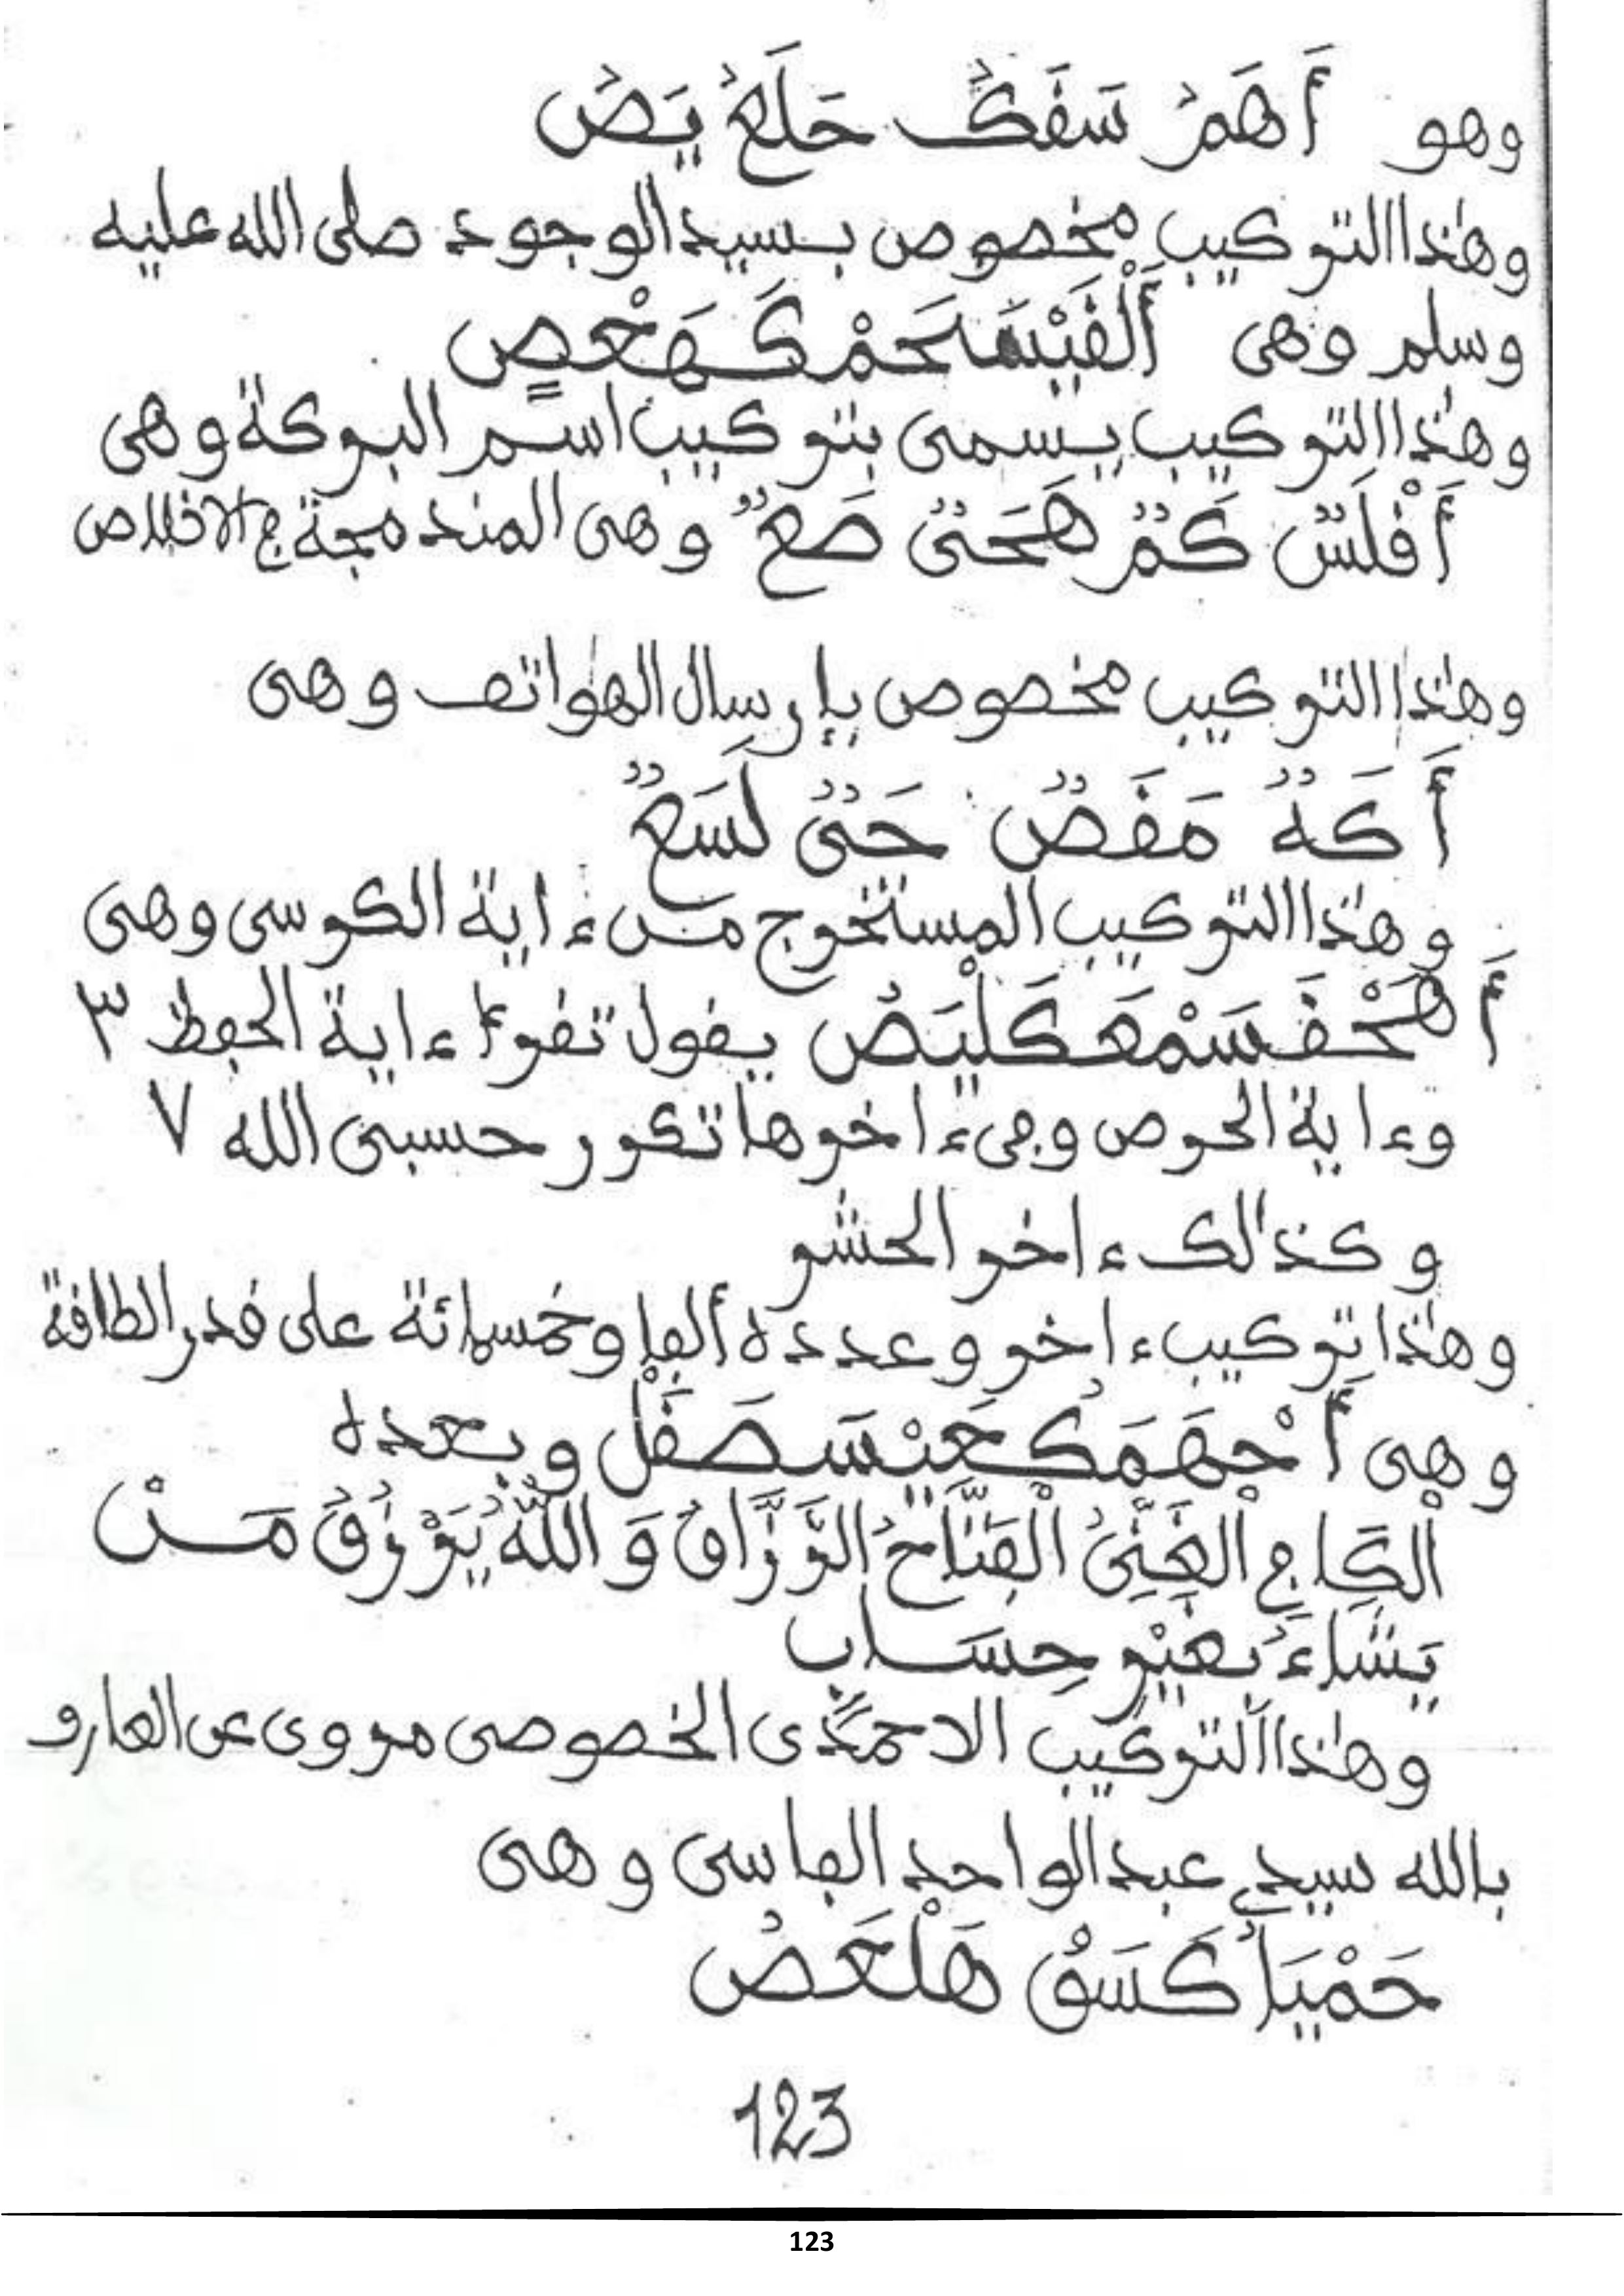 وهو أَهَمٌ سَقَكٌ حَلَعٌ يَصٌ
وهٰذا التركيب مخصوص بسيد الوجود صلى الله عليه
وسلم وهى أَلْقَيْسَحَمْ كَهَعْصٍ
وهٰذا التركيب يسمى بتركيب اسم البركة وهى
أَقْلَسٌ كَمٌ هَحَىٌ صَعٌ وهى المندمجة في الاخلاص
وهٰذا التركيب مخصوص بإرسال الهواتف وهى
أَكَهٌ مَقَصٌ حَىٌ لَسَعٌ
وهٰذا التركيب المستخرج من ءاية الكرسى وهى
أَهَحْقَسَمْعَكَلْيَصٌ يقول تقرأ ءاية الحفظ ٣
وءاية الحرص وفى ءاخرها تكرر حسبى الله ٧
وكذالك ءاخر الحشر
وهٰذا تركيب ءاخر وعدده ألفا وخمسمائة على قدر الطاقة
وهى أَحْهَمَكُعَيْسَصَقَلْ وبعده
الْكَافِى الْغَنِىُّ الْفَتَّاحُ الرَّزَّاقُ وَاللَّهُ يَرْزُقُ مَنْ
يَشَاءُ بِغَيْرِ حِسَابٍ
وهٰذا التركيب الاحمدى الخصوصى مروى عن العارف
بالله سيدي عبد الواحد الفاسى وهى
حَمْيَأُ كَسَقْ هَلْعَصُ
123
123